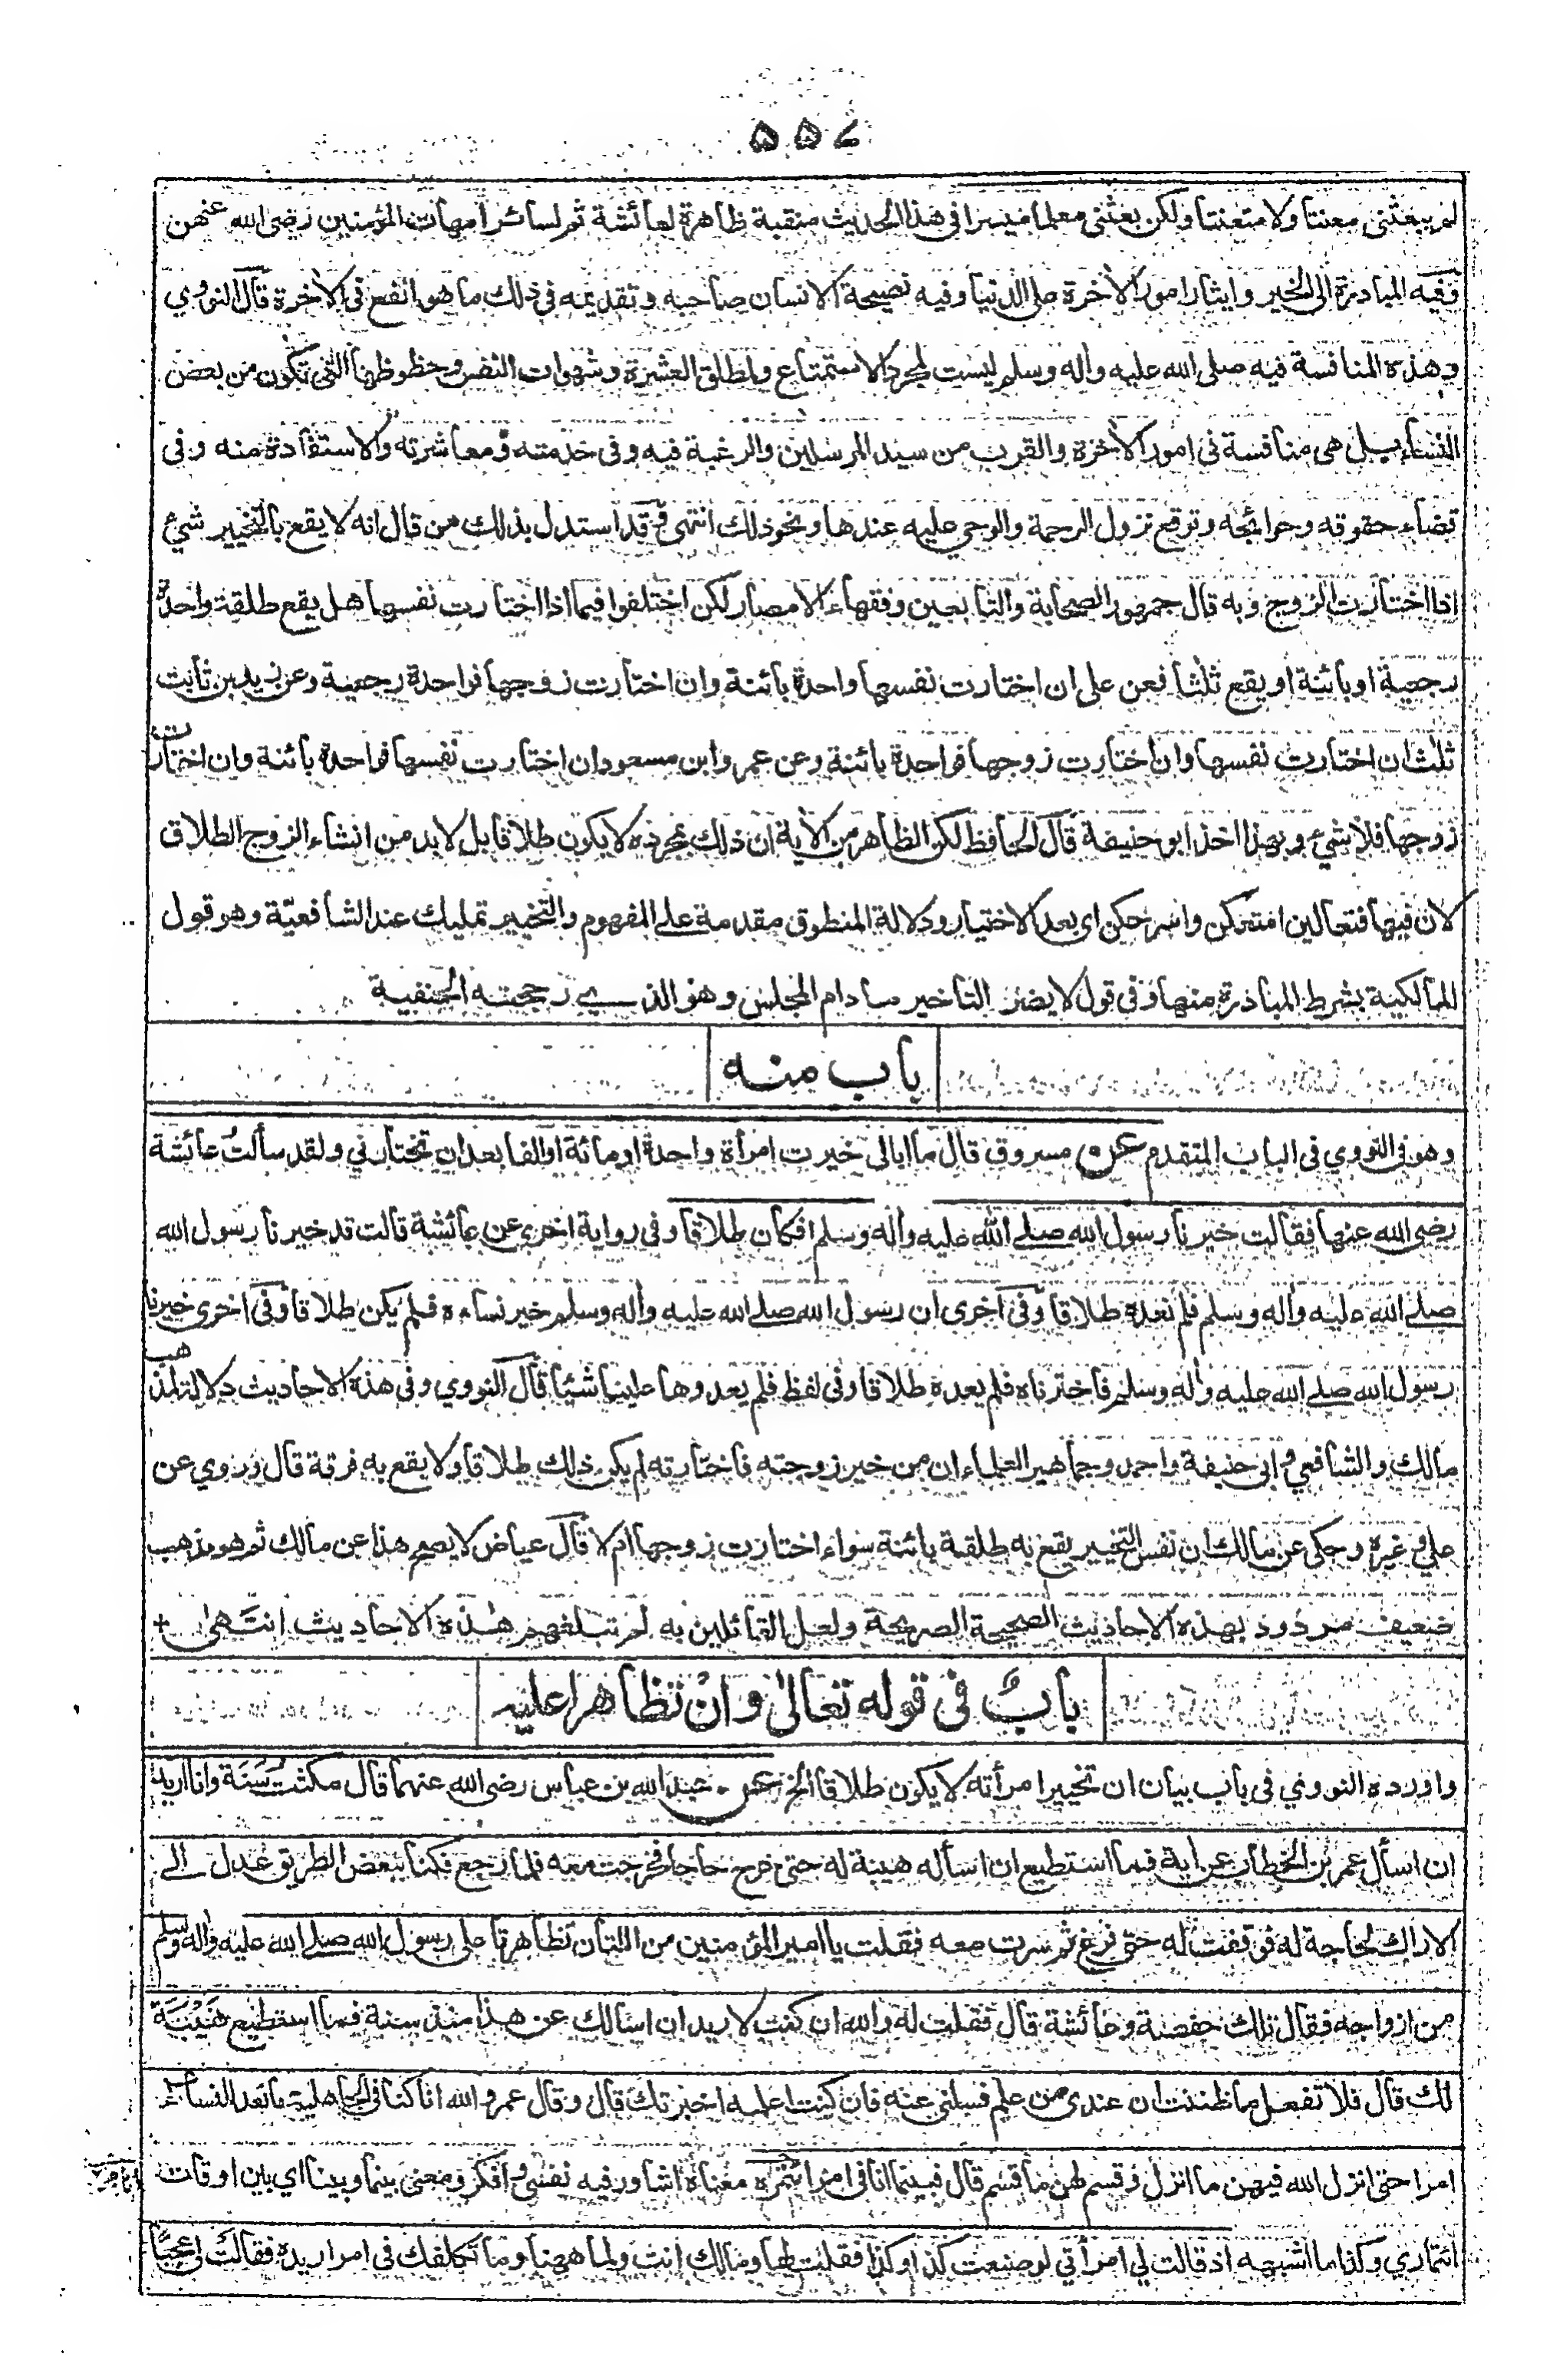 ۵۵۷
لم يبعثنى معنتا ولا متعنتا ولكن بعثنى معلما ميسرا فى هذا الحديث منقبة ظاهرة لعائشة ثم لسائر امهات المؤمنين رضى الله عنهن
وفيه المبادرة الى الخير وايثار امور الأخرة على الدنيا وفيه نصيحة الانسان صاحبه وتقديمه فى ذلك ما هو انفع فى الأخرة قال النووي
وهذه المنافسة فيه صلى الله عليه وأله وسلم ليست لمجرد الاستمتاع ولمطلق العشرة وشهوات النفس وحظوظها التى تكون من بعض
النساء بل هى منافسة فى امور الأخرة والقرب من سيد المرسلين والرغبة فيه وفى خدمته ومعاشرته والاستفادة منه وفى
قضاء حقوقه وحوائجه وتوقع نزول الرحمة والوحي عليه عندها ونحو ذلك انتهى وقد استدل بذلك من قال انه لا يقع بالتخيير شئ
اذا اختارت الزوج وبه قال جمهور الصحابة والتابعين وفقهاء الامصار لكن اختلفوا فيما اذا اختارت نفسها هل يقع طلقة واحدة
رجعية او بائنة او يقع ثلثا فعن على ان اختارت نفسها واحدة بائنة وان اختارت زوجها فواحدة رجعية وعن زيد بن ثابت
ثلث ان اختارت نفسها وان اختارت زوجها فواحدة بائنة وعن عمر وابن مسعود ان اختارت نفسها فواحدة بائنة وان اختارت
زوجها فلا شئ وبهذا اخذ ابو حنيفة قال الحافظ لكن الظاهر من الأية ان ذلك بمجرده لا يكون طلاقا بل لابد من انشاء الزوج الطلاق
لان فيها فتعالين امتعكن واسرحكن اى بعد الاختيار ودلالة المنطوق مقدمة على المفهوم والتخيير تمليك عند الشافعيّة وهو قول
للمالكية بشرط المبادرة منها وفى قول لا يضر التاخير مادام المجلس وهو الذى رجحته الحنفية
باب منه
وهو فى النووي فى الباب المتقدم عن مسروق قال ما ابالى خيرت امرأة واحدة او مائة او الفا بعد ان تختارني ولقد سألت عائشة
رضى الله عنها فقالت خيرنا رسول الله صلى الله عليه وأله وسلم افكان طلاقا وفى رواية اخرى عن عائشة قالت قد خيرنا رسول الله
صلى الله عليه وأله وسلم فلم نعده طلاقا وفى اخرى ان رسول الله صلى الله عليه وأله وسلم خير نساءه فلم يكن طلاقا وفى اخرى خيرنا
رسول الله صلى الله عليه وأله وسلم فاخترناه فلم يعده طلاقا وفى لفظ فلم يعدوها علينا شيئا قال النووي وفى هذه الاحاديث دلالة لمذهب
مالك والشافعي وابى حنيفة واحمد وجماهير العلماء ان من خير زوجته فاختارته لم يكن ذلك طلاقا ولا يقع به فرقة قال وروي عن
علي وغيره وحكى عن مالك ان نفس التخيير يقع به طلقة بائنة سواء اختارت زوجها ام لا قال عياض لا يصح هذا عن مالك ثم هو مذهب
ضعيف مردود بهذه الاحاديث الصحيحة الصريحة ولعل القائلين به لم تبلغهم هذه الاحاديث انتهى +
باب فى قوله تعالى وان تظاهرا عليه
واورده النووي فى باب بيان ان تخيير امرأته لا يكون طلاقا الخ عن عبد الله بن عباس رضى الله عنهما قال مكثت سنة وانا اريد
ان اسأل عمر بن الخطاب عن أية فما استطيع ان اسأله هيبة له حتى خرج حاجا فخرجت معه فلما رجع فكنا ببعض الطريق عدل الى
الاراك لحاجة له فوقفت له حتى فرغ ثم سرت معه فقلت يا امير المؤمنين من اللتان تظاهرتا على رسول الله صلى الله عليه وأله وسلم
من ازواجه فقال تلك حفصة وعائشة قال فقلت له والله ان كنت لاريد ان اسألك عن هذا منذ سنة فما استطيع هيبة
لك قال فلا تفعل ما ظننت ان عندى من علم فسلنى عنه فان كنت اعلمه اخبرتك قال وقال عمر والله ان كنا فى الجاهلية ما نعد للنساء
امرا حتى انزل الله فيهن ما انزل وقسم لهن ما قسم قال فبينما انا فى امر ائتمره معناه اشاور فيه نفسى وافكر ومعنى بينما وبينا اي بين اوقات
ائتماري وكذا ما اشبهه اذ قالت لي امرأتي لو صنعت كذا وكذا فقلت لها ومالك انت ولما ههنا وما تكلفك فى امر اريده فقالت لى عجبا